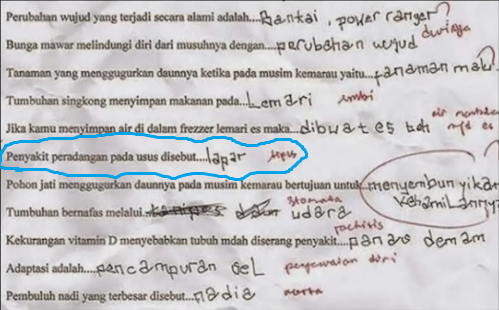 Perubahan wujud yang terjadi secara alami adalah....Bantai, power ranger ?
Bunga mawar melindungi diri dari musuhnya dengan....perubahan wujud durinya
Tanaman yang menggugurkan daunnya ketika pada musim kemarau yaitu....tanaman maki?
Tumbuhan singkong menyimpan makanan pada....Lemari umbi
Jika kamu menyimpan air di dalam frezzer lemari es maka....dibuat es teh air membeku mjd es
Penyakit peradangan pada usus disebut....lapar tipus
Pohon jati menggugurkan daunnya pada musim kemarau bertujuan untuk...menyembunyikan kehamilannya
Tumbuhan bernafas melalui udara stomata
Kekurangan vitamin D menyebabkan tubuh mdah diserang penyakit....panas demam rachitis
Adaptasi adalah....pencampuran gel penyesuaian diri
Pembuluh nadi yang terbesar disebut....nadia aorta